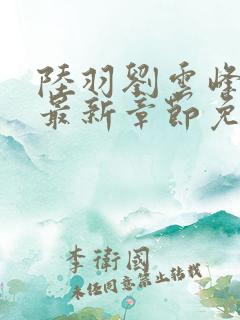 陸羽劉雲峰
最新章節免
李衛國
未经同意禁止转载